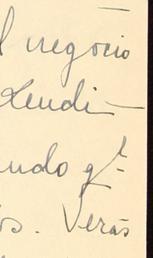 l negocio
Lendi-
ndo q.t
os. Verás